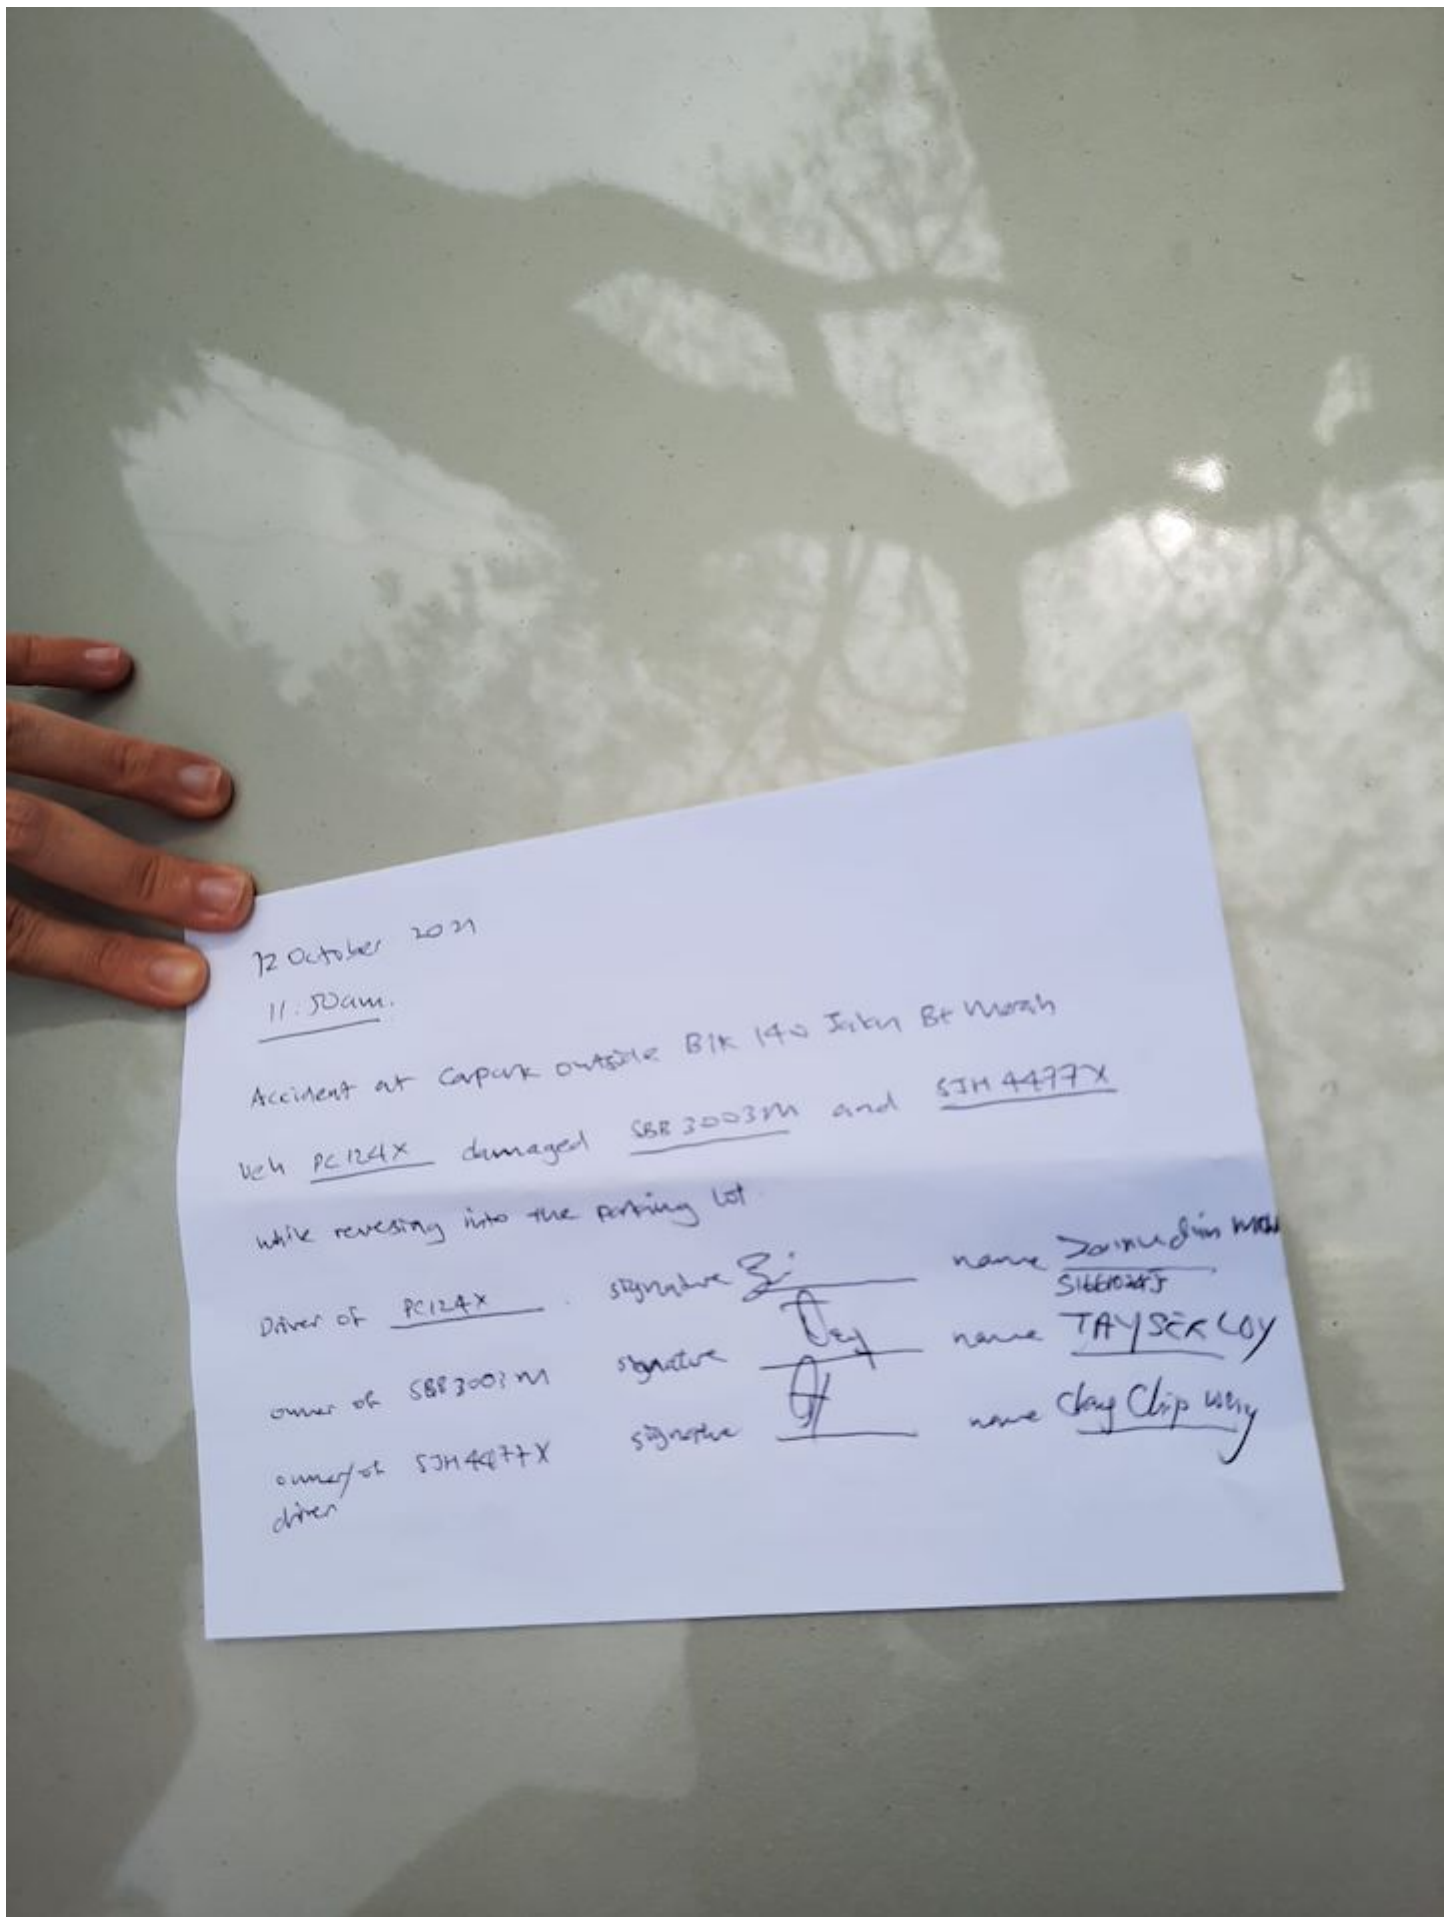 12 October 2021
11.50am.
Accident at Carpark outside Blk 140 Jalan Bt Merah
Veh PC124X damaged SBR3003M and SJH4477X
while revesing into the parking lot.
Driver of PC124X. signature name
owner of SBR3003M signature name TAY SEK LOY
owner/of SJH4477X signature name
driver